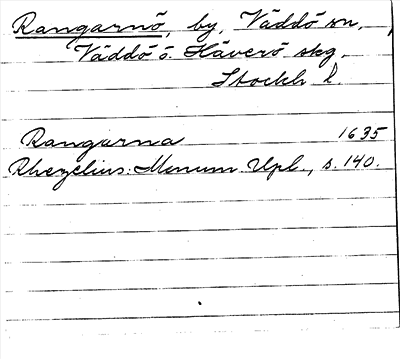 Rangarnö, by, Väddö sn,
Väddö o. Häverö skg,
Stockh l.
Rangarna 1635
Rhezelius: Monum. Upl., s. 140.